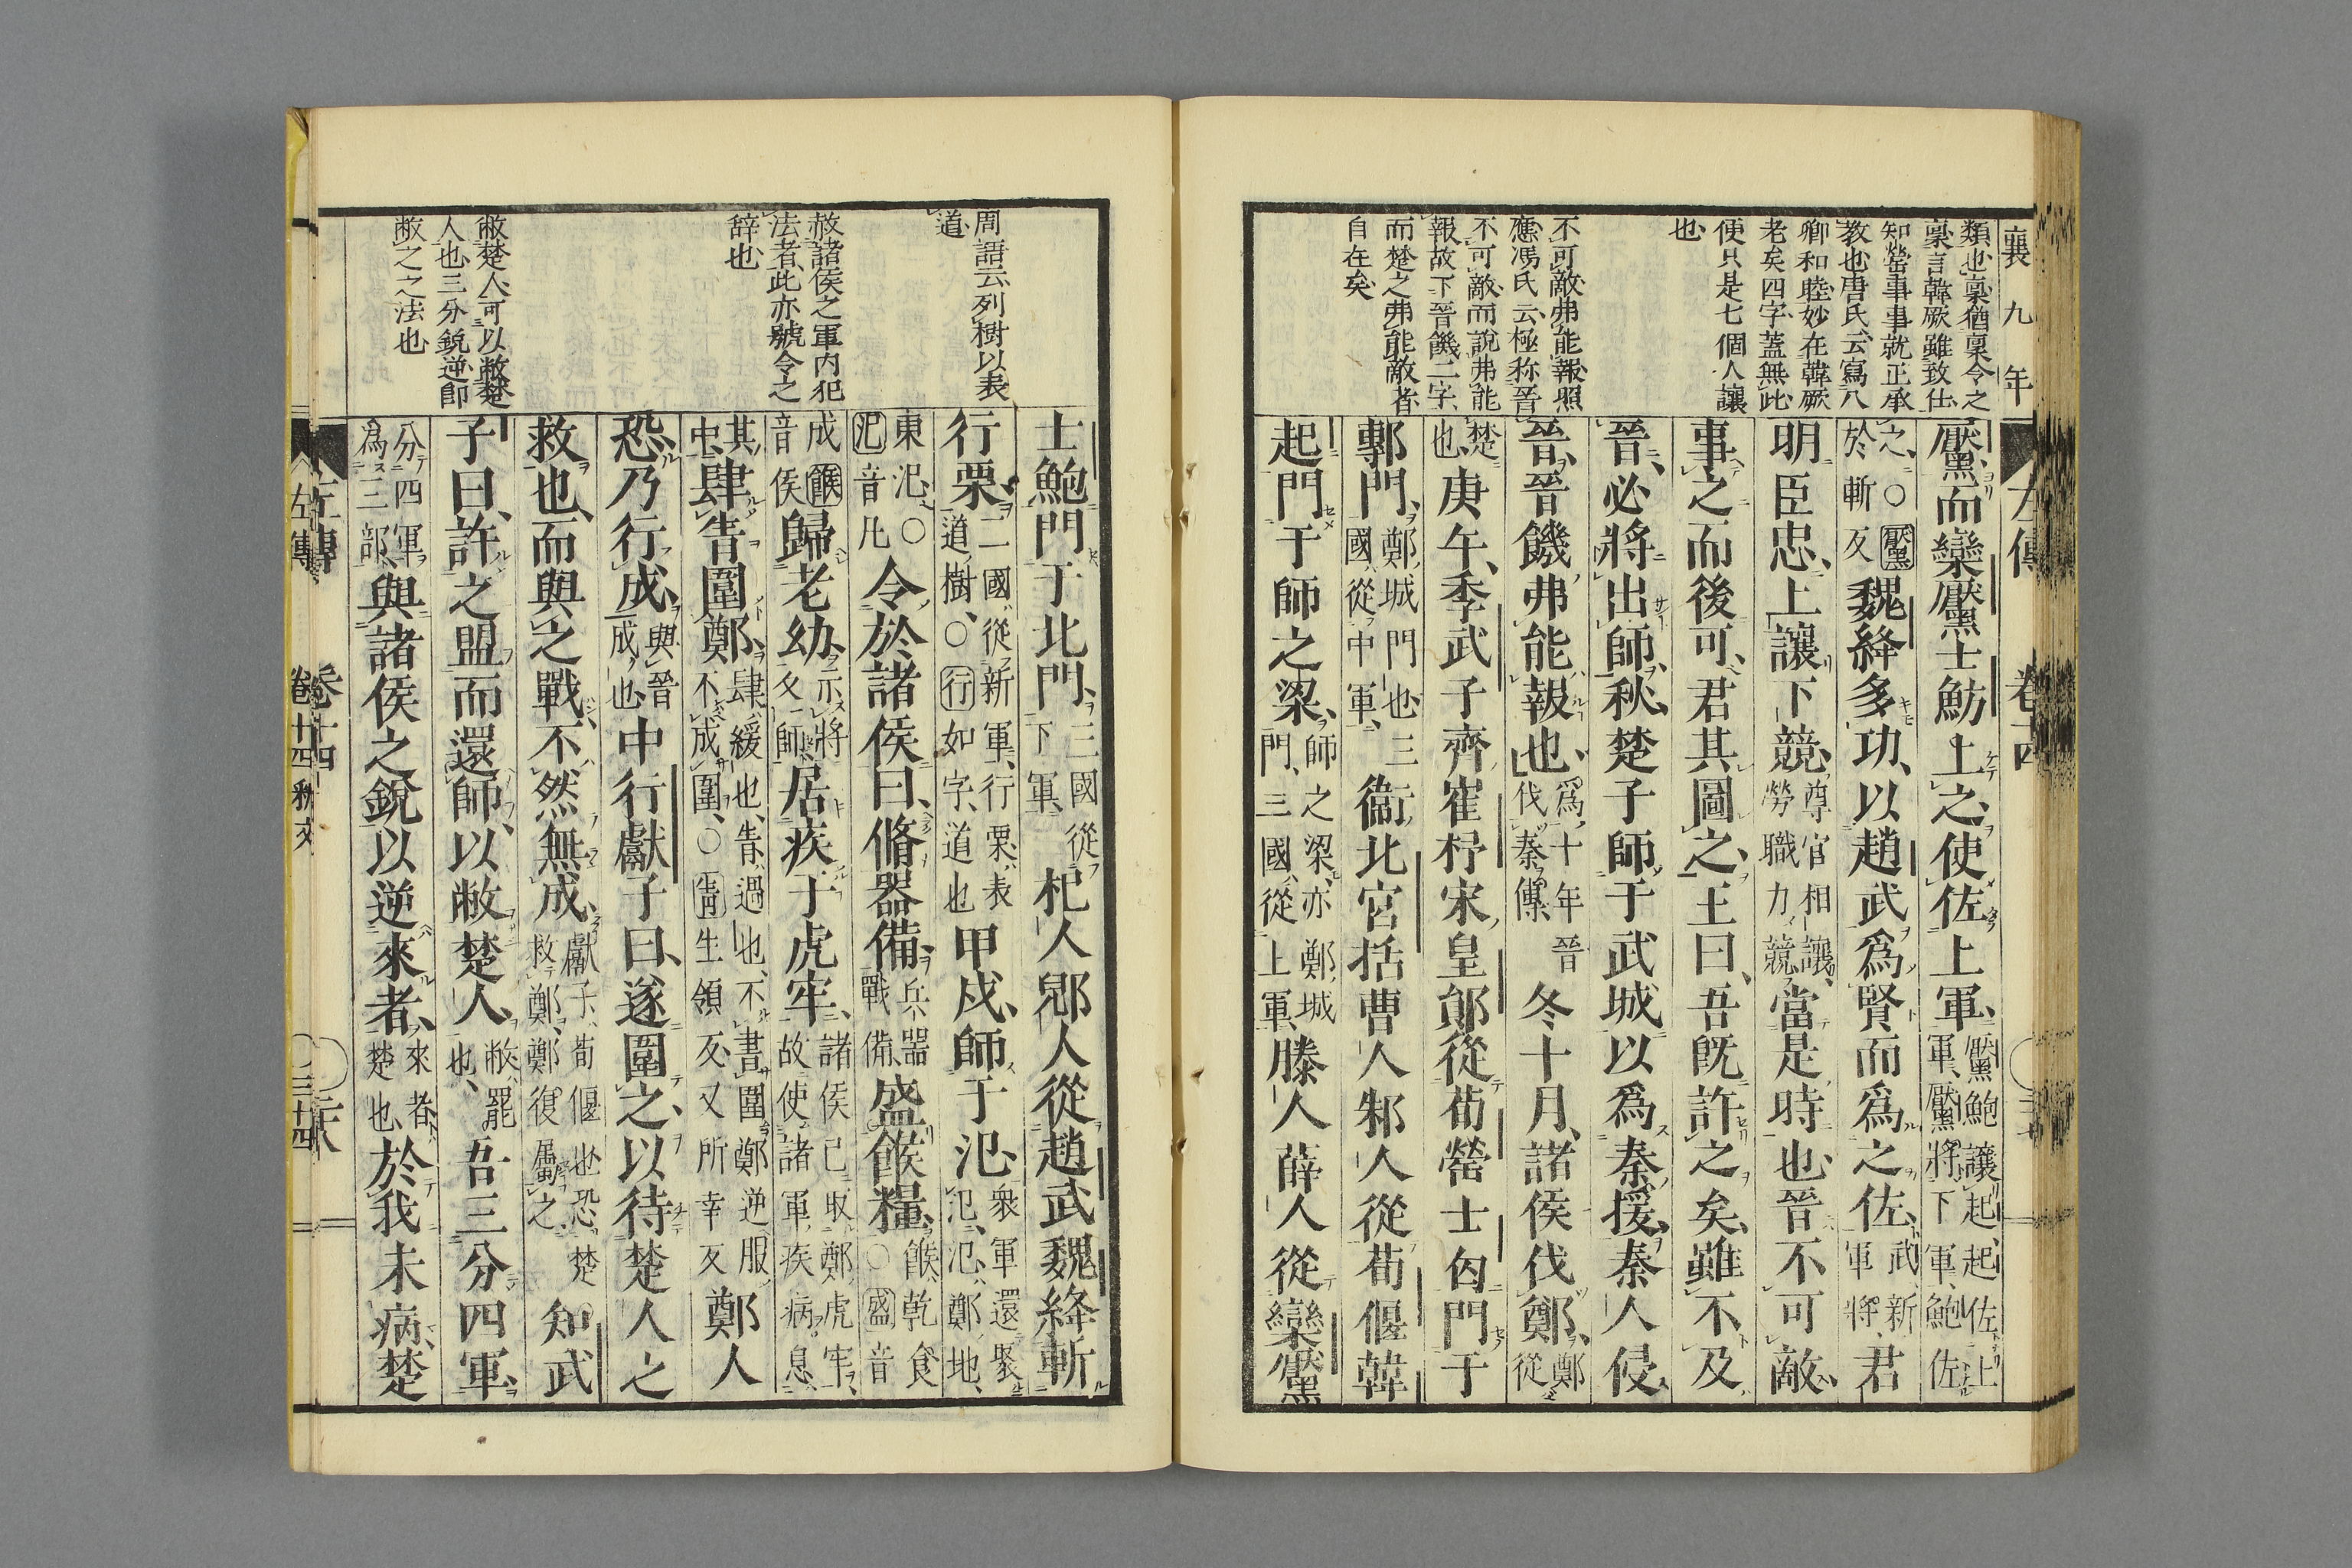 襄九年
類也稟猶稟令之
稟言韓厥雖致仕
知罃事事就正承
教也唐氏云寫八
卿和睦妙在韓厥
老矣四字蓋無此
便只是七個人讓
也
不可敵弗能報照
應馮氏云極称晉
不可敵而說弗能
報故下晉饑二字
而楚之弗能敵者
自在矣
左傳 卷十四
黶而欒黶士魴上之使佐上軍黶鮑讓起起佐上軍黶將下軍鮑佐
之○黶於斬反魏絳多功以趙武爲賢而爲之佐武新軍將君
明臣忠上讓下競尊官相讓勞職力競當是時也晉不可敵
事之而後可君其圖之王曰吾既許之矣雖不及
晉必將出師秋楚子師于武城以爲秦援秦人侵
晉晉饑弗能報也爲十年晉伐秦傳冬十月諸侯伐鄭鄭從
楚也庚午季武子齊崔杼宋皇鄖從荀罃士匄門于
鄟門鄭城門也三國從中軍衞北宮括曹人邾人從荀偃韓
起門于師之梁師之梁亦鄭城門三國從上軍滕人薛人從欒黶
周語云列樹以表
道
赦諸侯之軍内犯
法者此亦號令之
辞也
敝楚人可以敝楚
人也三分銳逆卽
敝之之法也
士鮑門于北門三國從下軍杞人郳人從趙武魏絳斬
行栗二國從新軍行栗表道樹○行如字道也甲戌師于氾衆軍還聚氾氾鄭地
東氾○氾音凡令於諸侯曰脩器備兵器戰備盛餱糧餱乾食○盛音
成餱音侯歸老幼示將久師居疾于虎牢諸侯已取鄭虎牢故使諸軍疾病息
其中肆眚圍鄭肆緩也眚過也不書圍鄭逆服不成圍○眚生領反又所幸反鄭人
恐乃行成與晉成也中行獻子曰遂圍之以待楚人之
救也而與之戰不然無成獻子荀偃也恐楚救鄭鄭復屬之知武
子曰許之盟而還師以敝楚人敝罷也吾三分四軍
分四軍爲三部與諸侯之銳以逆來者來者楚也於我未病楚
左傳 卷十四